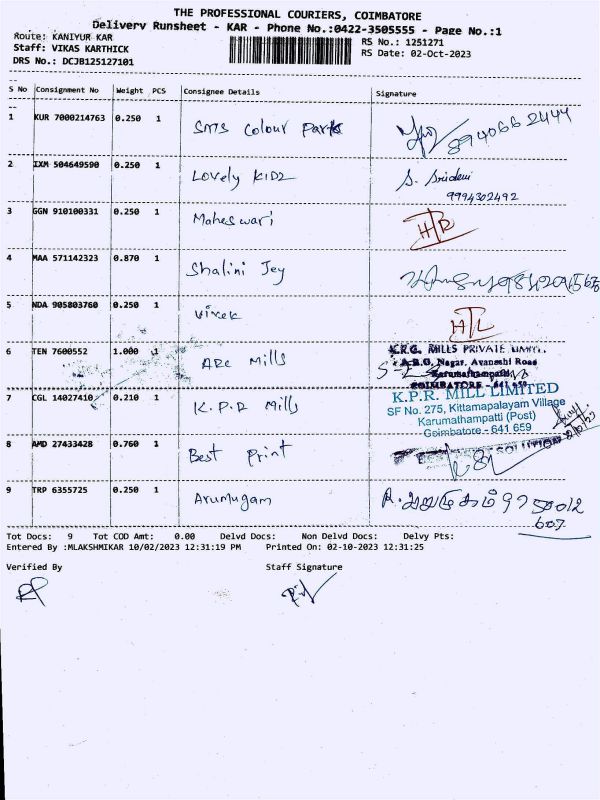 THE PROFESSIONAL COURIERS, COIMBATORE
Delivery Runsheet - KAR - Phone No.:0422-3505555 - Page No.:1
Route: KANIYUR KAR
Staff: VIKAS KARTHICK
DRS No.: DCJB125127101
RS No.: 1251271
RS Date: 02-Oct-2023
S No Consignment No Weight PCS Consignee Details Signature
1 KUR 7000214763 0.250 1 SMS Colour Park 8940662444
2 IXM 504649590 0.250 1 Lovely KIDZ S. Sridevi
9994302492
3 GGN 910100331 0.250 1 Maheswari
4 MAA 571142323 0.870 1 Shalini Jey
5 NDA 905803760 0.250 1 Vivek
6 TEN 7600552 1.000 1 ARC Mills
K.R.G. MILLS PRIVATE LIMIT.
A.R.G. Nagar, Avanashi Road
Karumathampatti,
COIMBATORE - 641 659
7 CGL 14027410 0.210 1 K.P.R Mills
K.P.R. MILL LIMITED
SF No. 275, Kittamapalayam Village
Karumathampatti (Post)
Coimbatore - 641 659
8 AMD 27433428 0.760 1 Best Print
SOLUTION
9 TRP 6355725 0.250 1 Arumugam
Tot Docs: 9 Tot COD Amt: 0.00 Delvd Docs: Non Delvd Docs: Delvy Pts:
Entered By :MLAKSHMIKAR 10/02/2023 12:31:19 PM Printed On: 02-10-2023 12:31:25
Verified By Staff Signature